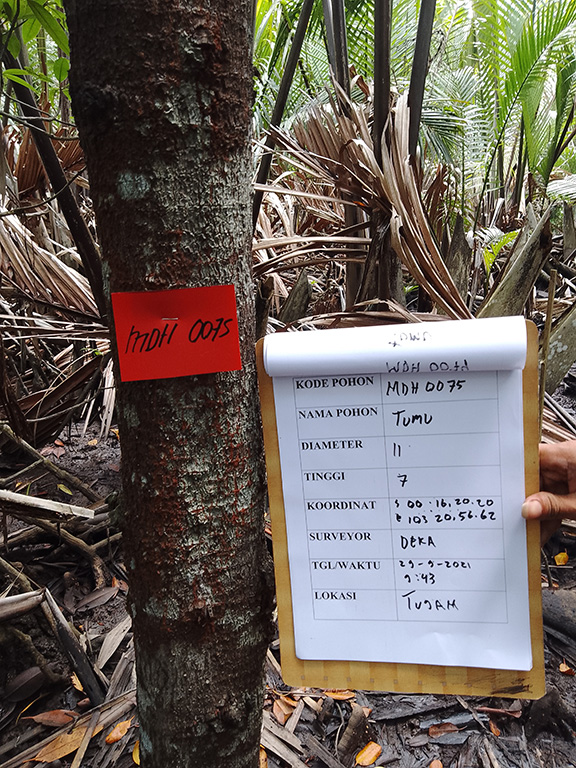 MDH 0075
KODE POHON MDH 0075
NAMA POHON TUMU
DIAMETER 11
TINGGI 7
KOORDINAT S 00:16,20.20
E 103 20,56.62
SURVEYOR DEKA
TGL/WAKTU 29-9-2021
9:43
LOKASI